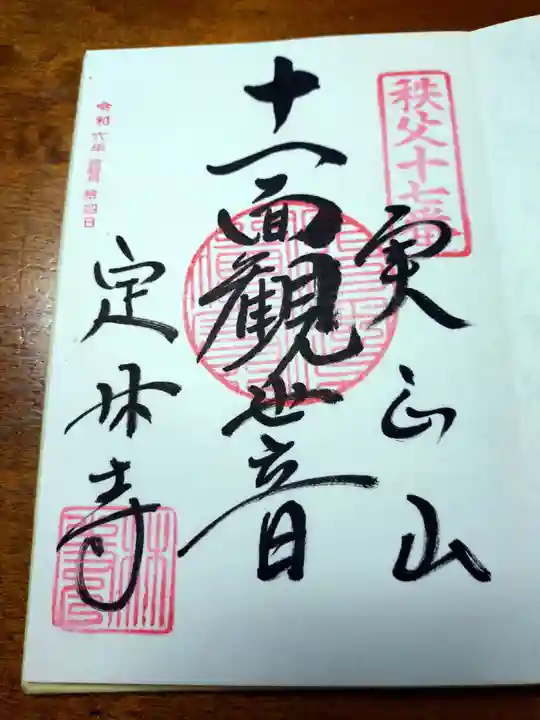 秩父十七番
実正山
十一面観世音
定林寺
令和六年四月拾四日